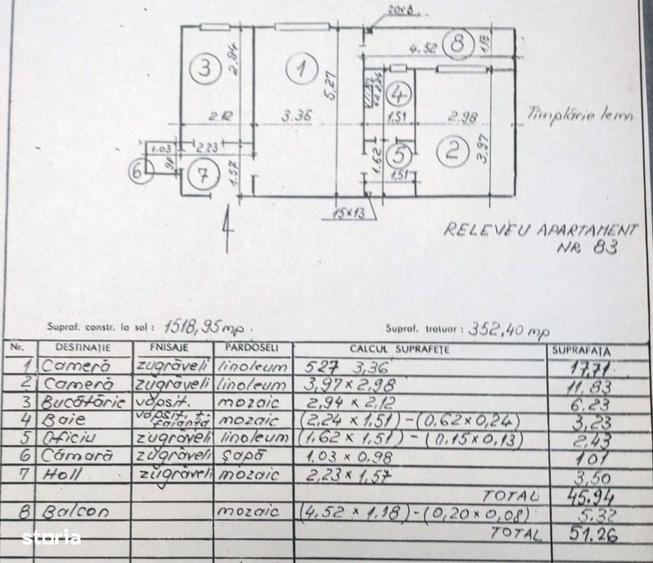 20×8
4.52
8
1.18
3
2.94
1
5.27
4
2.12
3.36
1.51
2.98
Tîmplărie lemn
2
3.97
1.03
2.23
1.62
5
6
98
7
1.57
1.51
4
15×13
RELEVEU APARTAMENT
NR 83
Supraf. constr. la sol : 1518,95 mp.
Supraf. trotuor : 352,40 mp
Nr. DESTINAȚIE FNISAJE PARDOSELI CALCUL SUPRAFEȚE SUPRAFAȚA
1 Cameră zugrăveli linoleum 527 3,36 17,71
2 Cameră zugrăveli linoleum 3,97×2,98 11,83
3 Bucătărie vopsit. mozaic 2,94×2,12 6.23
4 Baie vopsit. + faianță mozaic (2,24×1,51)-(0,62×0,24) 3,23
5 Oficiu zugrăveli linoleum (1,62×1,51)-(0,15×0,13) 2,43
6 Cămară zugrăveli șapă 1,03×0,98 101
7 Holl zugrăveli mozaic 2,23×1,57 3,50
TOTAL 45.94
8 Balcon mozaic (4.52×1.18)-(0,20×0,08) 5.32
TOTAL 51.26
storia